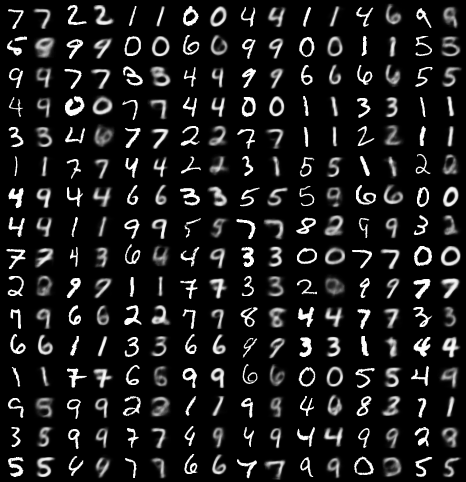 7 7 2 2 1 1 0 0 4 4 1 1 4 6 9 9
5 9 9 9 0 0 6 0 9 9 0 0 1 1 5 5
9 9 7 7 3 3 4 9 9 9 6 6 6 6 5 5
4 9 0 0 7 7 4 4 0 0 1 1 3 3 1 1
3 3 4 6 7 7 2 2 7 7 1 1 2 2 1 1
1 1 7 7 4 4 2 2 3 1 5 5 1 1 2 2
4 9 4 4 6 6 3 3 5 5 5 9 6 6 0 0
4 4 1 1 9 9 5 5 7 7 8 2 9 9 3 2
7 7 4 3 6 4 4 9 3 3 0 0 7 7 0 0
2 2 9 9 1 1 7 7 3 3 2 0 9 9 7 7
7 9 6 6 2 2 7 9 8 8 4 4 7 7 3 3
6 6 1 1 3 3 6 6 9 9 3 3 1 1 4 4
1 1 7 7 6 6 9 9 6 6 0 0 5 5 4 9
9 5 9 9 2 2 1 1 9 9 4 0 8 3 7 1
3 5 9 9 7 7 4 9 4 9 4 4 9 9 2 8
5 5 4 4 7 7 6 6 7 7 9 9 0 0 5 5